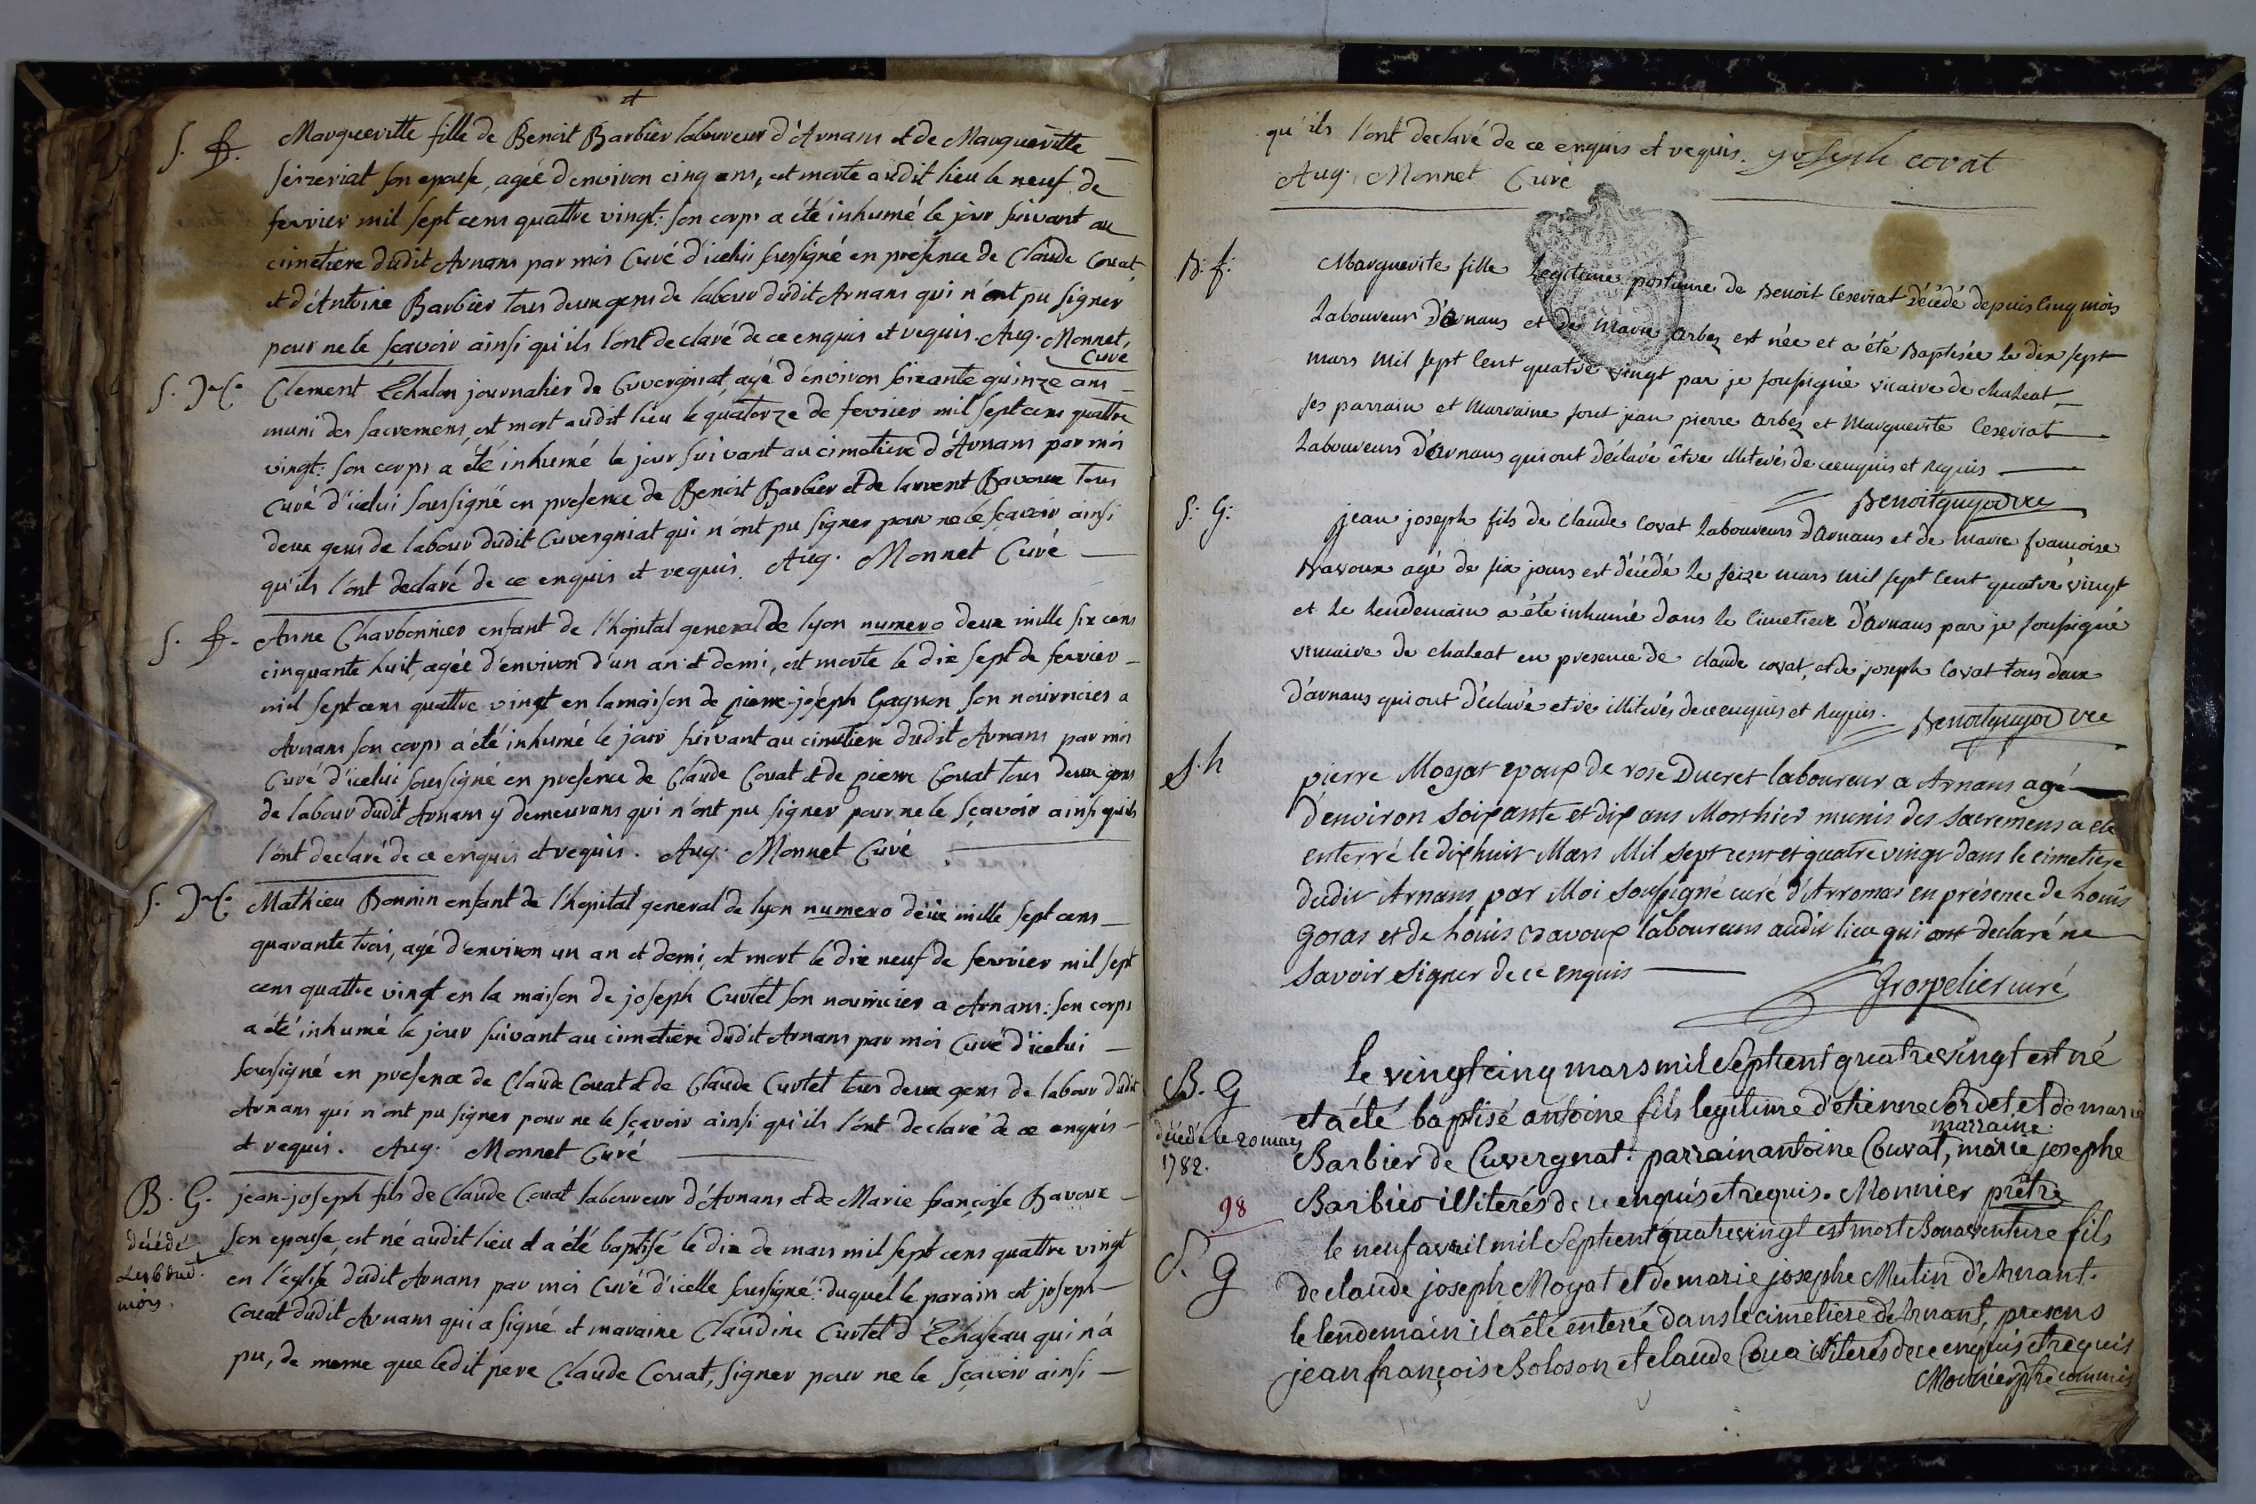 S. f. Margueritte fille de Benoit Barbier laboureur d'Arnans et de Margueritte
serreriat son epouse, agée d'environ cinq ans, est morte audit lieu le neuf de
fevrier mil sept cens quattre vingt: son corps a été inhumé le jour suivant au
cimetiere dudit Arnans par moi Curé d'icelui soussigné en presence de Claude Couat
et d'Antoine Barbier tous deux gens de labour dudit Arnans qui n'ont pu signer
pour ne le sçavoir ainsi qu'ils l'ont declaré de ce enquis et requis. Aug. Monnet,
Curé
Clement Echalon journalier de Cuvergniat, agé d'environ soixante quinze ans
muni des sacremens, est mort audit lieu le quatorze de fevrier mil sept cens quattre
vingt: son corps a été inhumé le jour suivant au cimetiere d'Arnans par moi
Curé d'icelui soussigné en presence de Benoit Barbier et de larrent Bavoux tous
deux gens de labour dudit Cuvergniat qui n'ont pu signer pour ne le sçavoir ainsi
qu'ils l'ont declaré de ce enquis et requis. Aug. Monnet Curé
S. f. Anne Charbonnier enfant de l'hopital general de lyon numero deux mille six cens
cinquante huit, agée d'environ d'un an et demi, est morte le dix sept de fevrier
mil sept cens quattre vingt en la maison de pierre-joseph Gagnon son nourricier a
Arnans son corps a été inhumé le jour suivant au cimetiere dudit Arnans par moi
Curé d'icelui soussigné en presence de Claude Couat et de pierre Couat tous deux gens
de labour dudit Arnans y demeurans qui n'ont pu signer pour ne le sçavoir ainsi qu'ils
l'ont declaré de ce enquis et requis. Aug. Monnet Curé
Mathieu Bonnin enfant de l'hopital general de lyon numero deux mille sept cens
quarante trois, agé d'environ un an et demi, est mort le dix neuf de fevrier mil sept
cens quattre vingt en la maison de joseph Curtet son nourricier a Arnans: son corps
a été inhumé le jour suivant au cimetiere dudit Arnans par moi Curé d'icelui
soussigné en presence de Claude Couat et de Claude Curtet tous deux gens de labour dudit
Arnans qui n'ont pu signer pour ne le sçavoir ainsi qu'ils l'ont declaré de ce enquis
et requis. Aug. Monnet Curé
B. G. jean-joseph fils de Claude Couat laboureur d'Arnans et de Marie françoise Bavoux
décédé
mois.
son epouse, est né audit lieu et a été baptisé le dix de mars mil sept cens quattre vingt
en l'église dudit Arnans par moi Curé d'icelle soussigné: duquel le parain est joseph
Couat dudit Arnans qui a signé et maraine Claudine Curtet d'Echaseau qui n'a
pu, de meme que ledit pere Claude Couat, signer pour ne le sçavoir ainsi
qu'ils l'ont declaré de ce enquis et requis. joseph covat
Aug. Monnet Curé
B. f. Marguerite fille Legitime postume de Benoit Ceseriat décédé depuis cinq mois
Laboureur d'arnans et de marie arbez est née et a été Baptisée le dix sept
mars mil sept cent quatre vingt par je soussigné vicaire de chaleat
ses parrain et marraine sont jean pierre arbez et marguerite Ceseriat
Laboureurs d'arnans qui ont déclaré être illiterés de ce enquis et requis
Benoit guyod vre
S. G. jean joseph fils de Claude Covat Laboureurs d'arnans et de marie francoise
Bavoux agé de six jours est décédé le seize mars mil sept cent quatre vingt
et le lendemain a été inhumé dans le cimetiere d'arnans par je soussigné
vicaire de chaleat en presence de claude covat, et de joseph Covat tous deux
d'arnans qui ont déclaré etre illiterés de ce enquis et requis. Benoit guyod vre
S. h pierre Moyat epoux de rose Ducret laboureur a Arnans agé
d'environ soixante et dix ans Mort hier munis des sacremens a été
enterré le dix huit Mars Mil sept cent et quatre vingt dans le cimetiere
dudit Arnans par Moi soussigné curé d'Arromas en présence de Louis
goras et de Louis Bavoux laboureurs audit lieu qui ont declaré ne
savoir signer de ce enquis
Gropelier curé
B. G Le vingt cinq mars mil sept cent quatre vingt est né
et a été baptisé antoine fils legitime d'etienne Cordet, et de marie
décédé le 20 mars
1782.
marraine.
Barbier de Cuvergnat. parrain antoine Couvat, marie josephe
Barbier illiterés de ce enquis et requis. Monnier prêtre
98
S. G le neuf avril mil sept cent quatre vingt est mort Bonaventure fils
de claude joseph Moyat et de marie josephe Mutin d'Arnant.
le lendemain il a été enterré dans le cimetiere de Arnant, presens
jean françois Boloson et claude Coua illiterés de ce enquis et requis
Monnier ptre commis